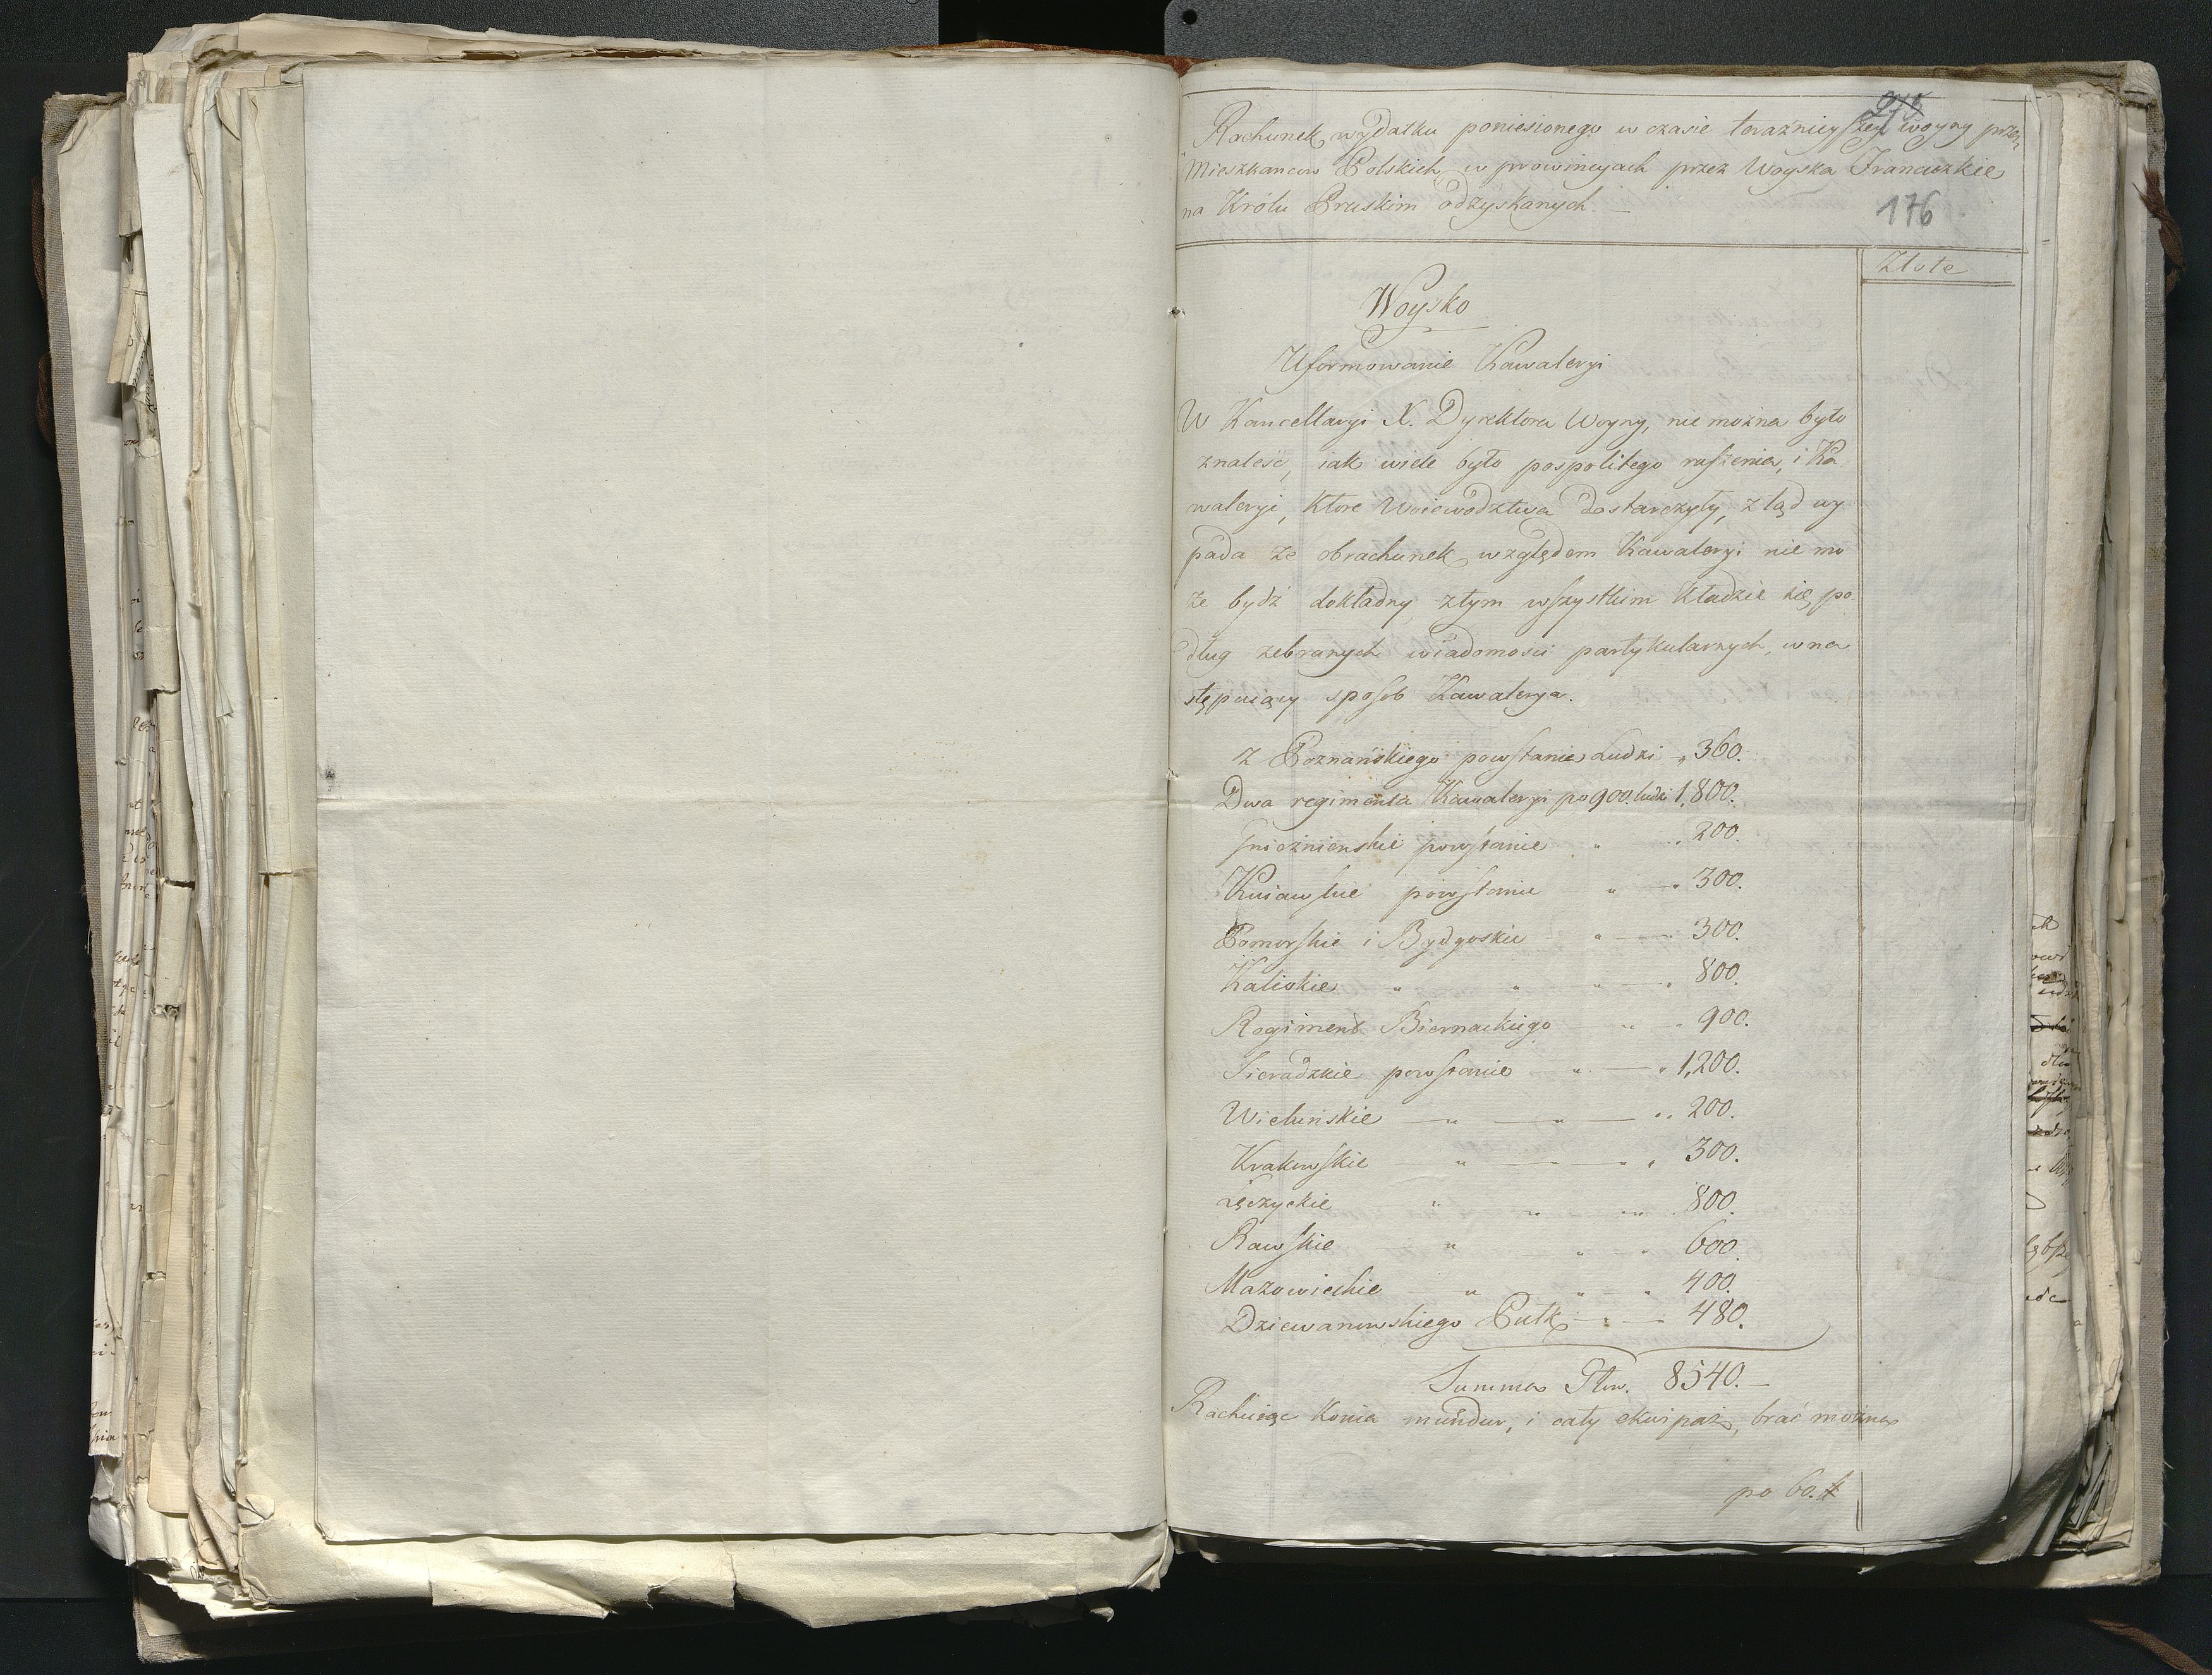 Rachunek wydatku poniesionego w czasie teraźnieyszey woyny przez
Mieszkancow Polskich, w prowincyach przez Woyska Francuzkie
na Królu Pruskim odzyskanych —
176
Złote
Woysko
Uformowanie Kawaleryi
W Kancellaryi X. Dyrektora Woyny, nie można było
znaleść, iak wiele było pospolitego ruszenia, i Ka
waleryi, ktore Woiewodztwa dostarczyły, ztąd wy
pada że obrachunek względem Kawaleryi nie mo
że bydź dokładny, ztym wszystkim kładzie się po
dług zebranych wiadomości partykularnych, w na
stępuiący sposob Kawalerya.
Z Poznańskiego powstanie Ludzi „ 360.
Dwa regimenta Kawaleryi po 900. ludzi 1,800.
Gnieznienskie powstanie „ „ 200.
Kuiawskie powstanie „ „ 300.
Pomorskie i Bydgoskie „ „ 300.
Kaliskie „ „ „ „ 800.
Regiment Biernackiego „ „ 900.
Sieradzkie powstanie „ „ 1,200.
Wieluńskie „ „ „ 200.
Krakowskie „ „ „ 300.
Łęczyckie „ „ „ 800.
Rawskie „ „ „ 600.
Mazowieckie „ „ „ 400.
Dziewanowskiego Pułk „ 480.
Summa 8540. —
Rachuiąc konia mundur, i cały ekwipaż, brać można
po 60. #